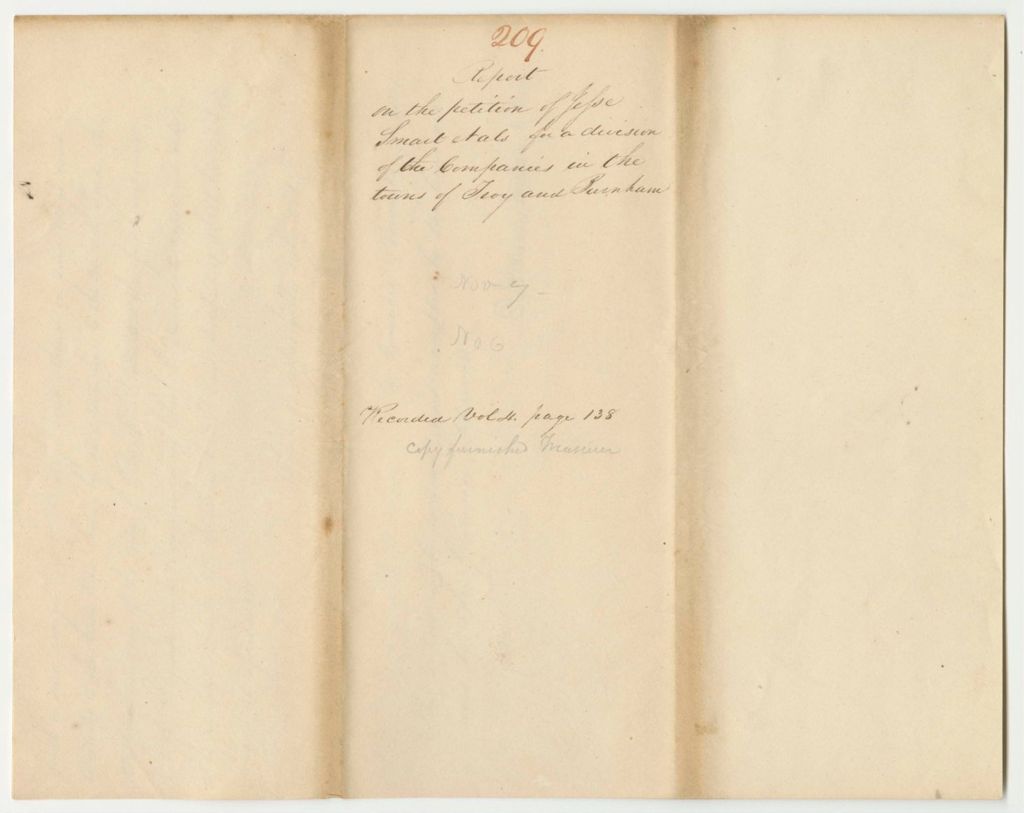 209
Report
on the petition of Jesse
Smart et als for a division
of the Companies in the
towns of Troy and Burnham
No 6
Recorded Vol 4. page 138
copy furnished